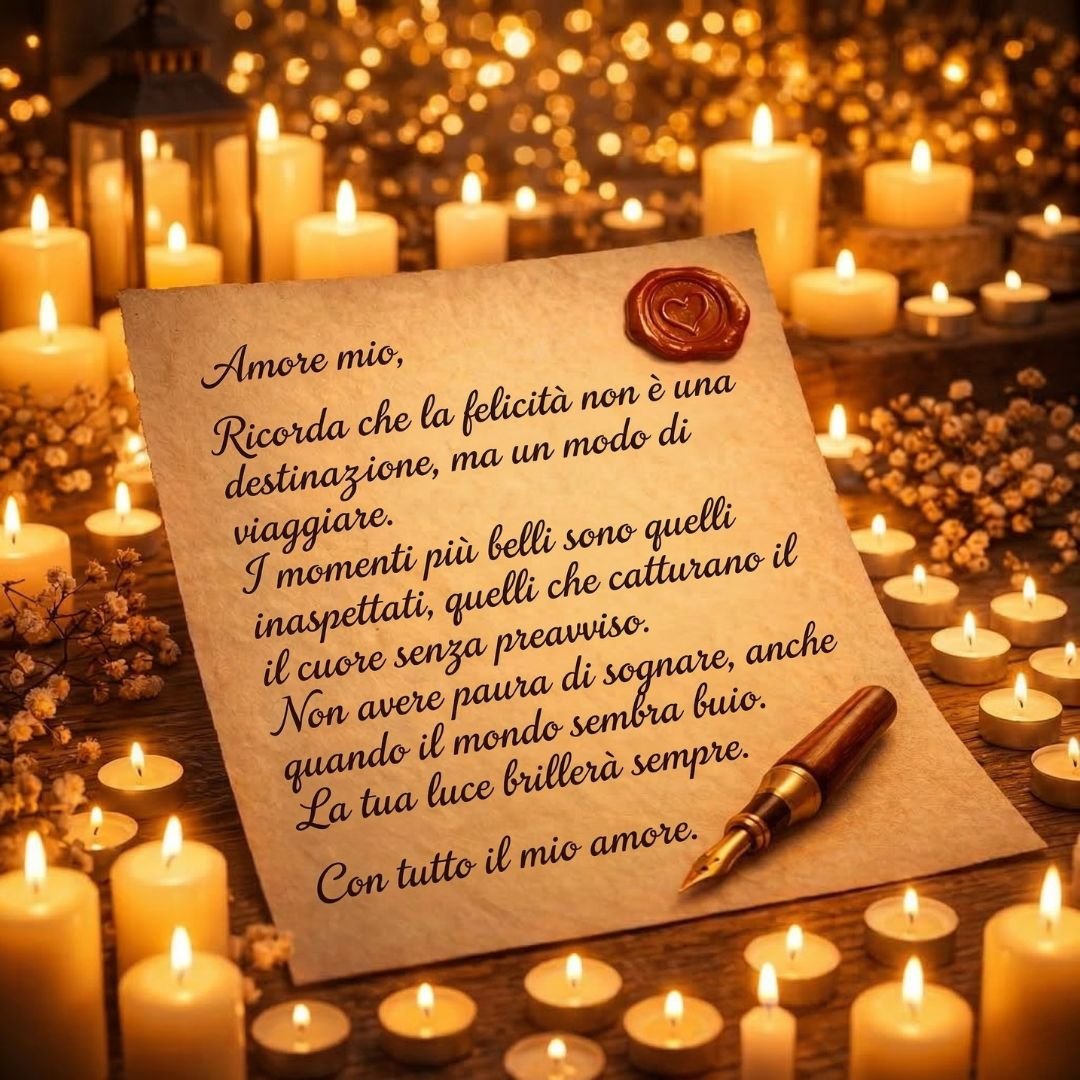 Amore mio,
Ricorda che la felicità non è una
destinazione, ma un modo di
viaggiare.
I momenti più belli sono quelli
inaspettati, quelli che catturano il
il cuore senza preavviso.
Non avere paura di sognare, anche
quando il mondo sembra buio.
La tua luce brillerà sempre.
Con tutto il mio amore.